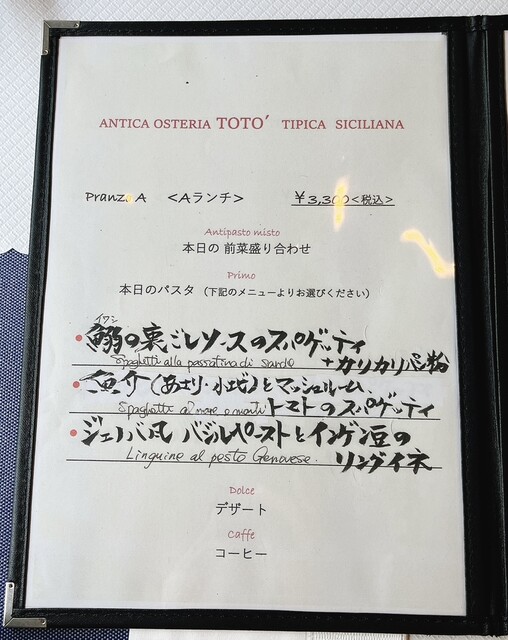 ANTICA OSTERIA TOTO' TIPICA SICILIANA
Pranzo A <Aランチ> ¥3,300<税込>
Antipasto misto
本日の 前菜盛り合わせ
Primo
本日のパスタ (下記のメニューよりお選びください)
イワシ
鰯の裏ごしソースのスパゲッティ
Spaghetti alla passatina di sarde
+カリカリパン粉
魚介(あさり・小エビ)とマッシュルーム、
Spaghetti al mare e monti トマトのスパゲッティ
ジェノバ風 バジルペーストとインゲン豆の
Linguine al pesto Genovese. リングイネ
Dolce
デザート
Caffe
コーヒー